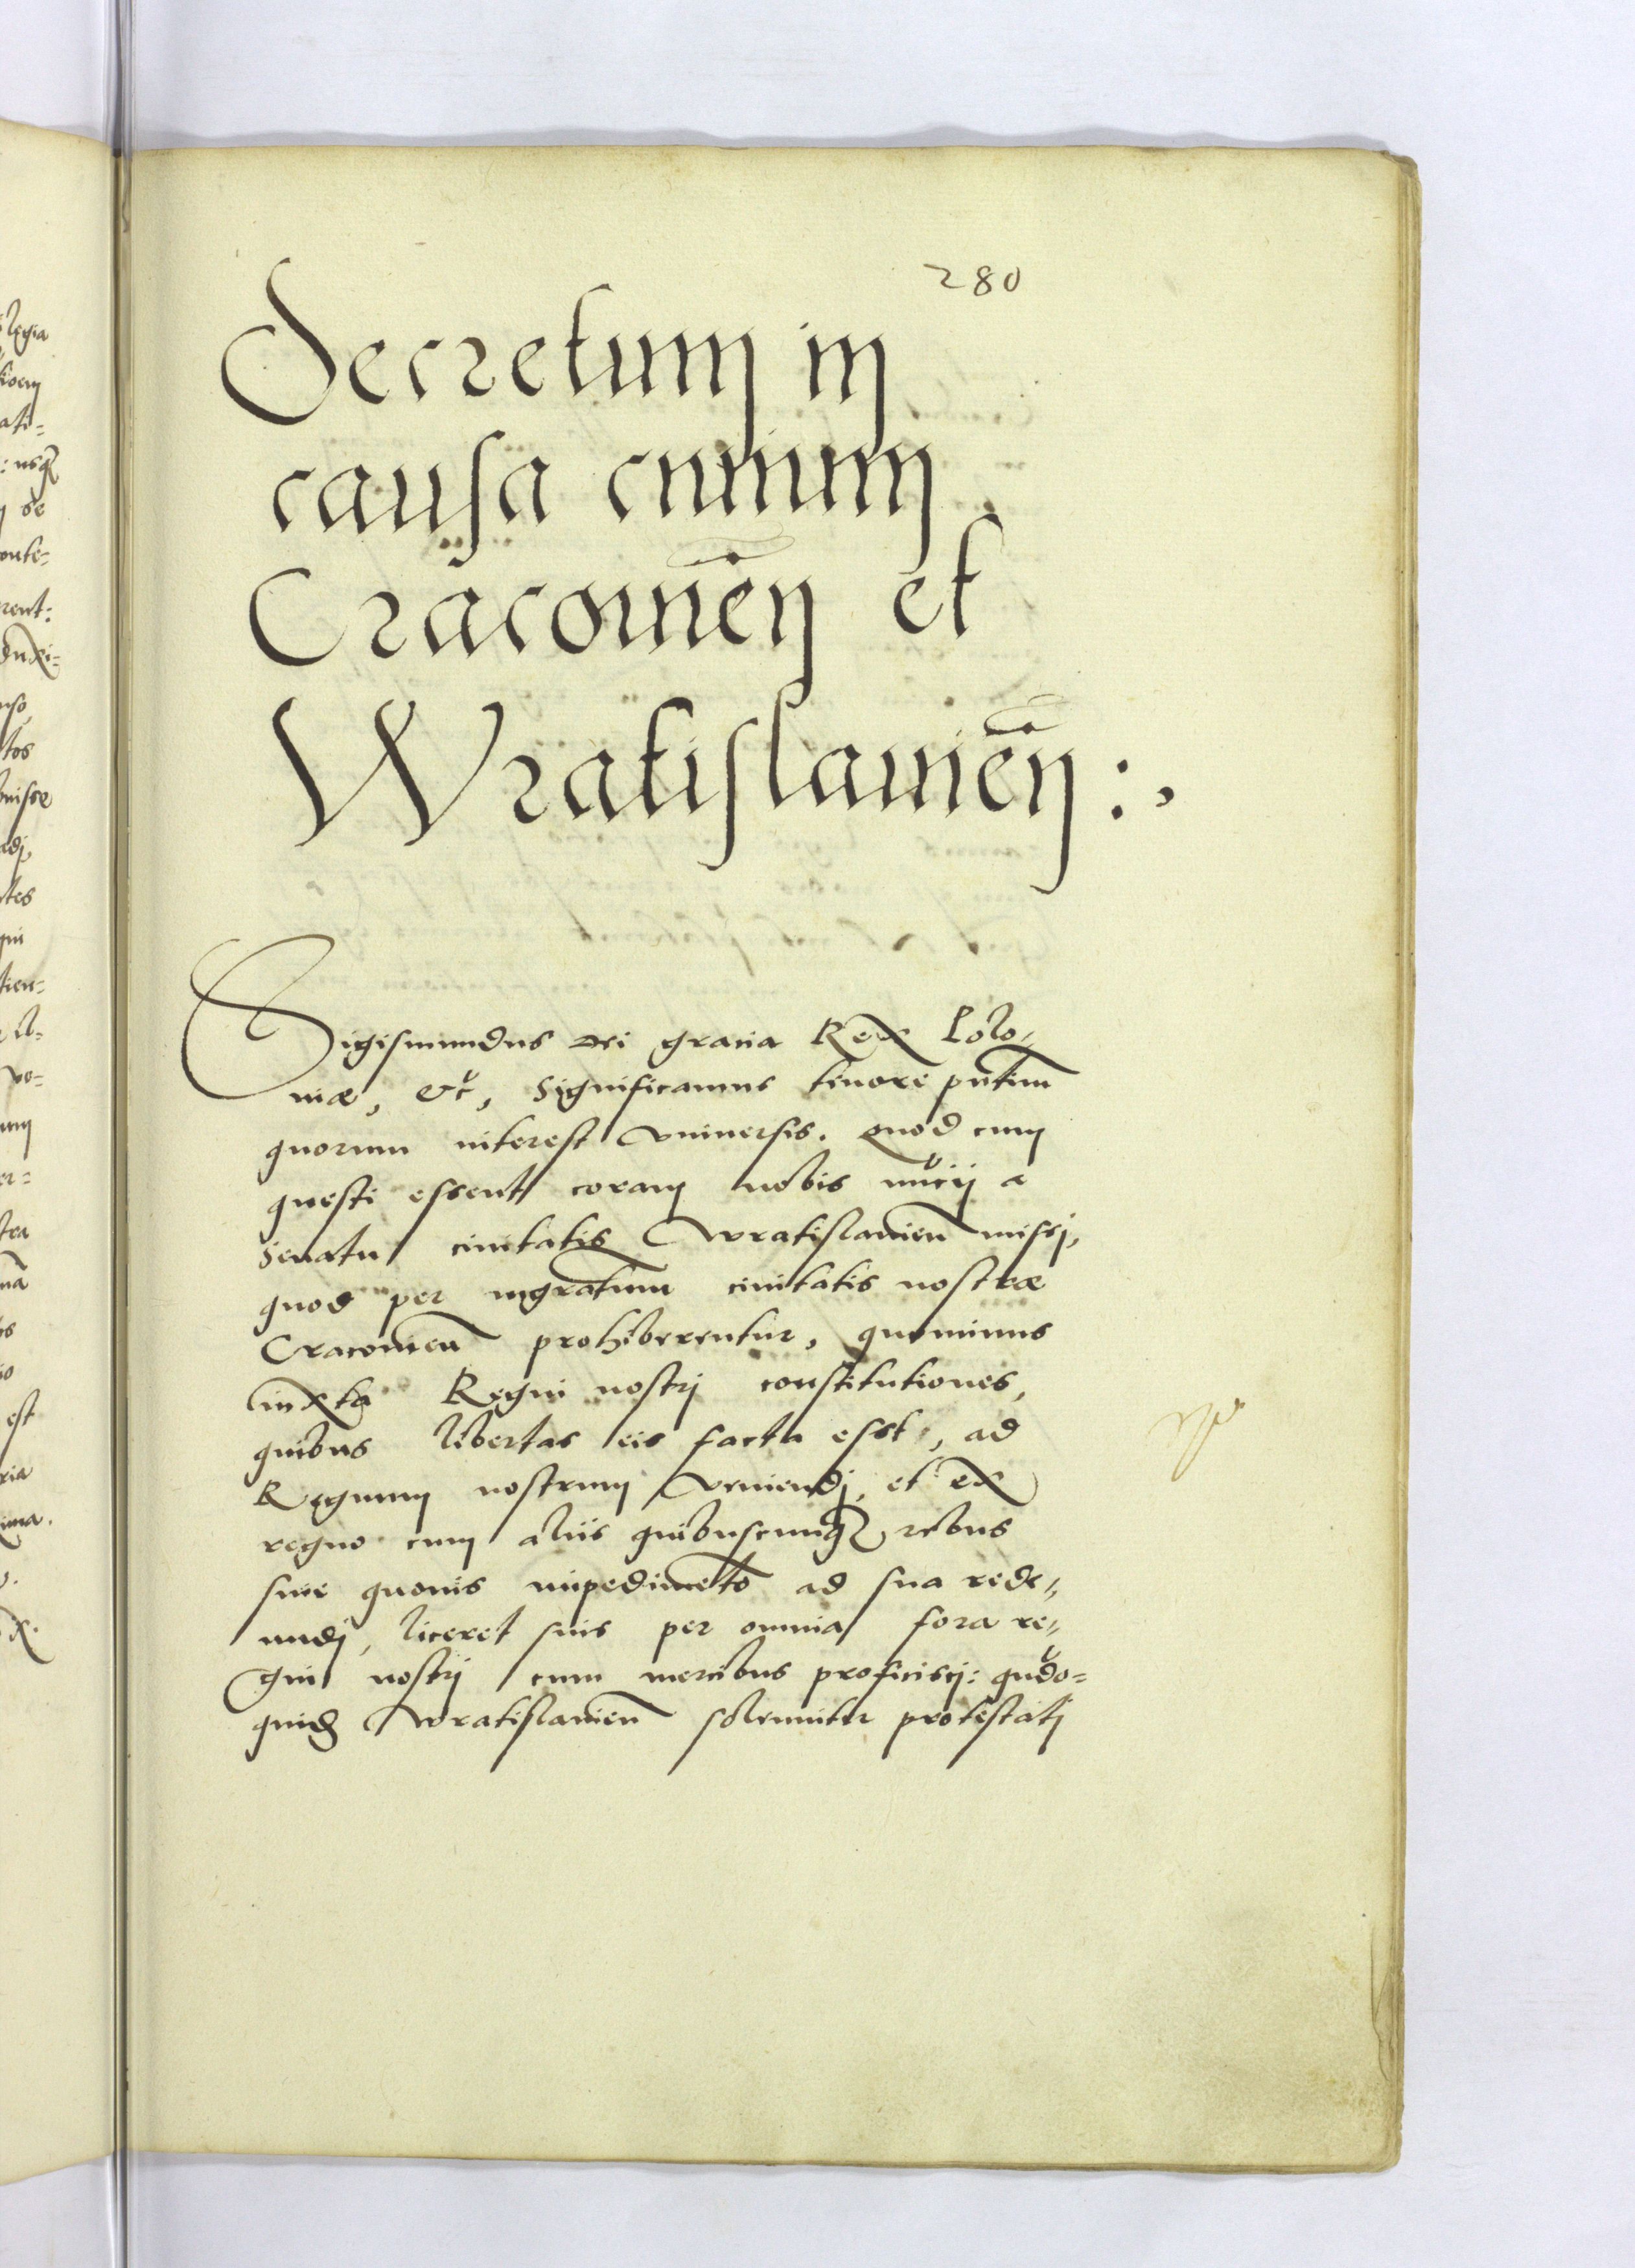 280
Decretum in
causa ciuium
Cracouien̄ et
Wratislauien̄ :,
Sigismundus dei gracia Rex Polo-
niæ, &c, Significamus tenore pn̄tium
quorum interest vniuersis. Quod cum
questi essent coram nobis nūcij a
Senatu ciuitatis Wratislauien̄ missj,
quod per mgratum ciuitatis nostræ
Cracouien̄ prohiberentur, quominus
iuxta Regni nostrj constitutiones,
quibus libertas eis facta esset, ad
Regnum nostrum veniendj, et ex
regno cum aliis quibuscunqʒ rebus
sine quouis impedimēto ad sua rede-
undj, liceret suis per omnia fora re-
gni nostrj cum mercibus proficiscj: qūdo=
quidē Wratislauien̄ solenniter protestatj
legia
ati=
: usqʒ
de
onte=
rent:
duxi=
tos
uisse
adj,
tes
qui
tien=
est
ria